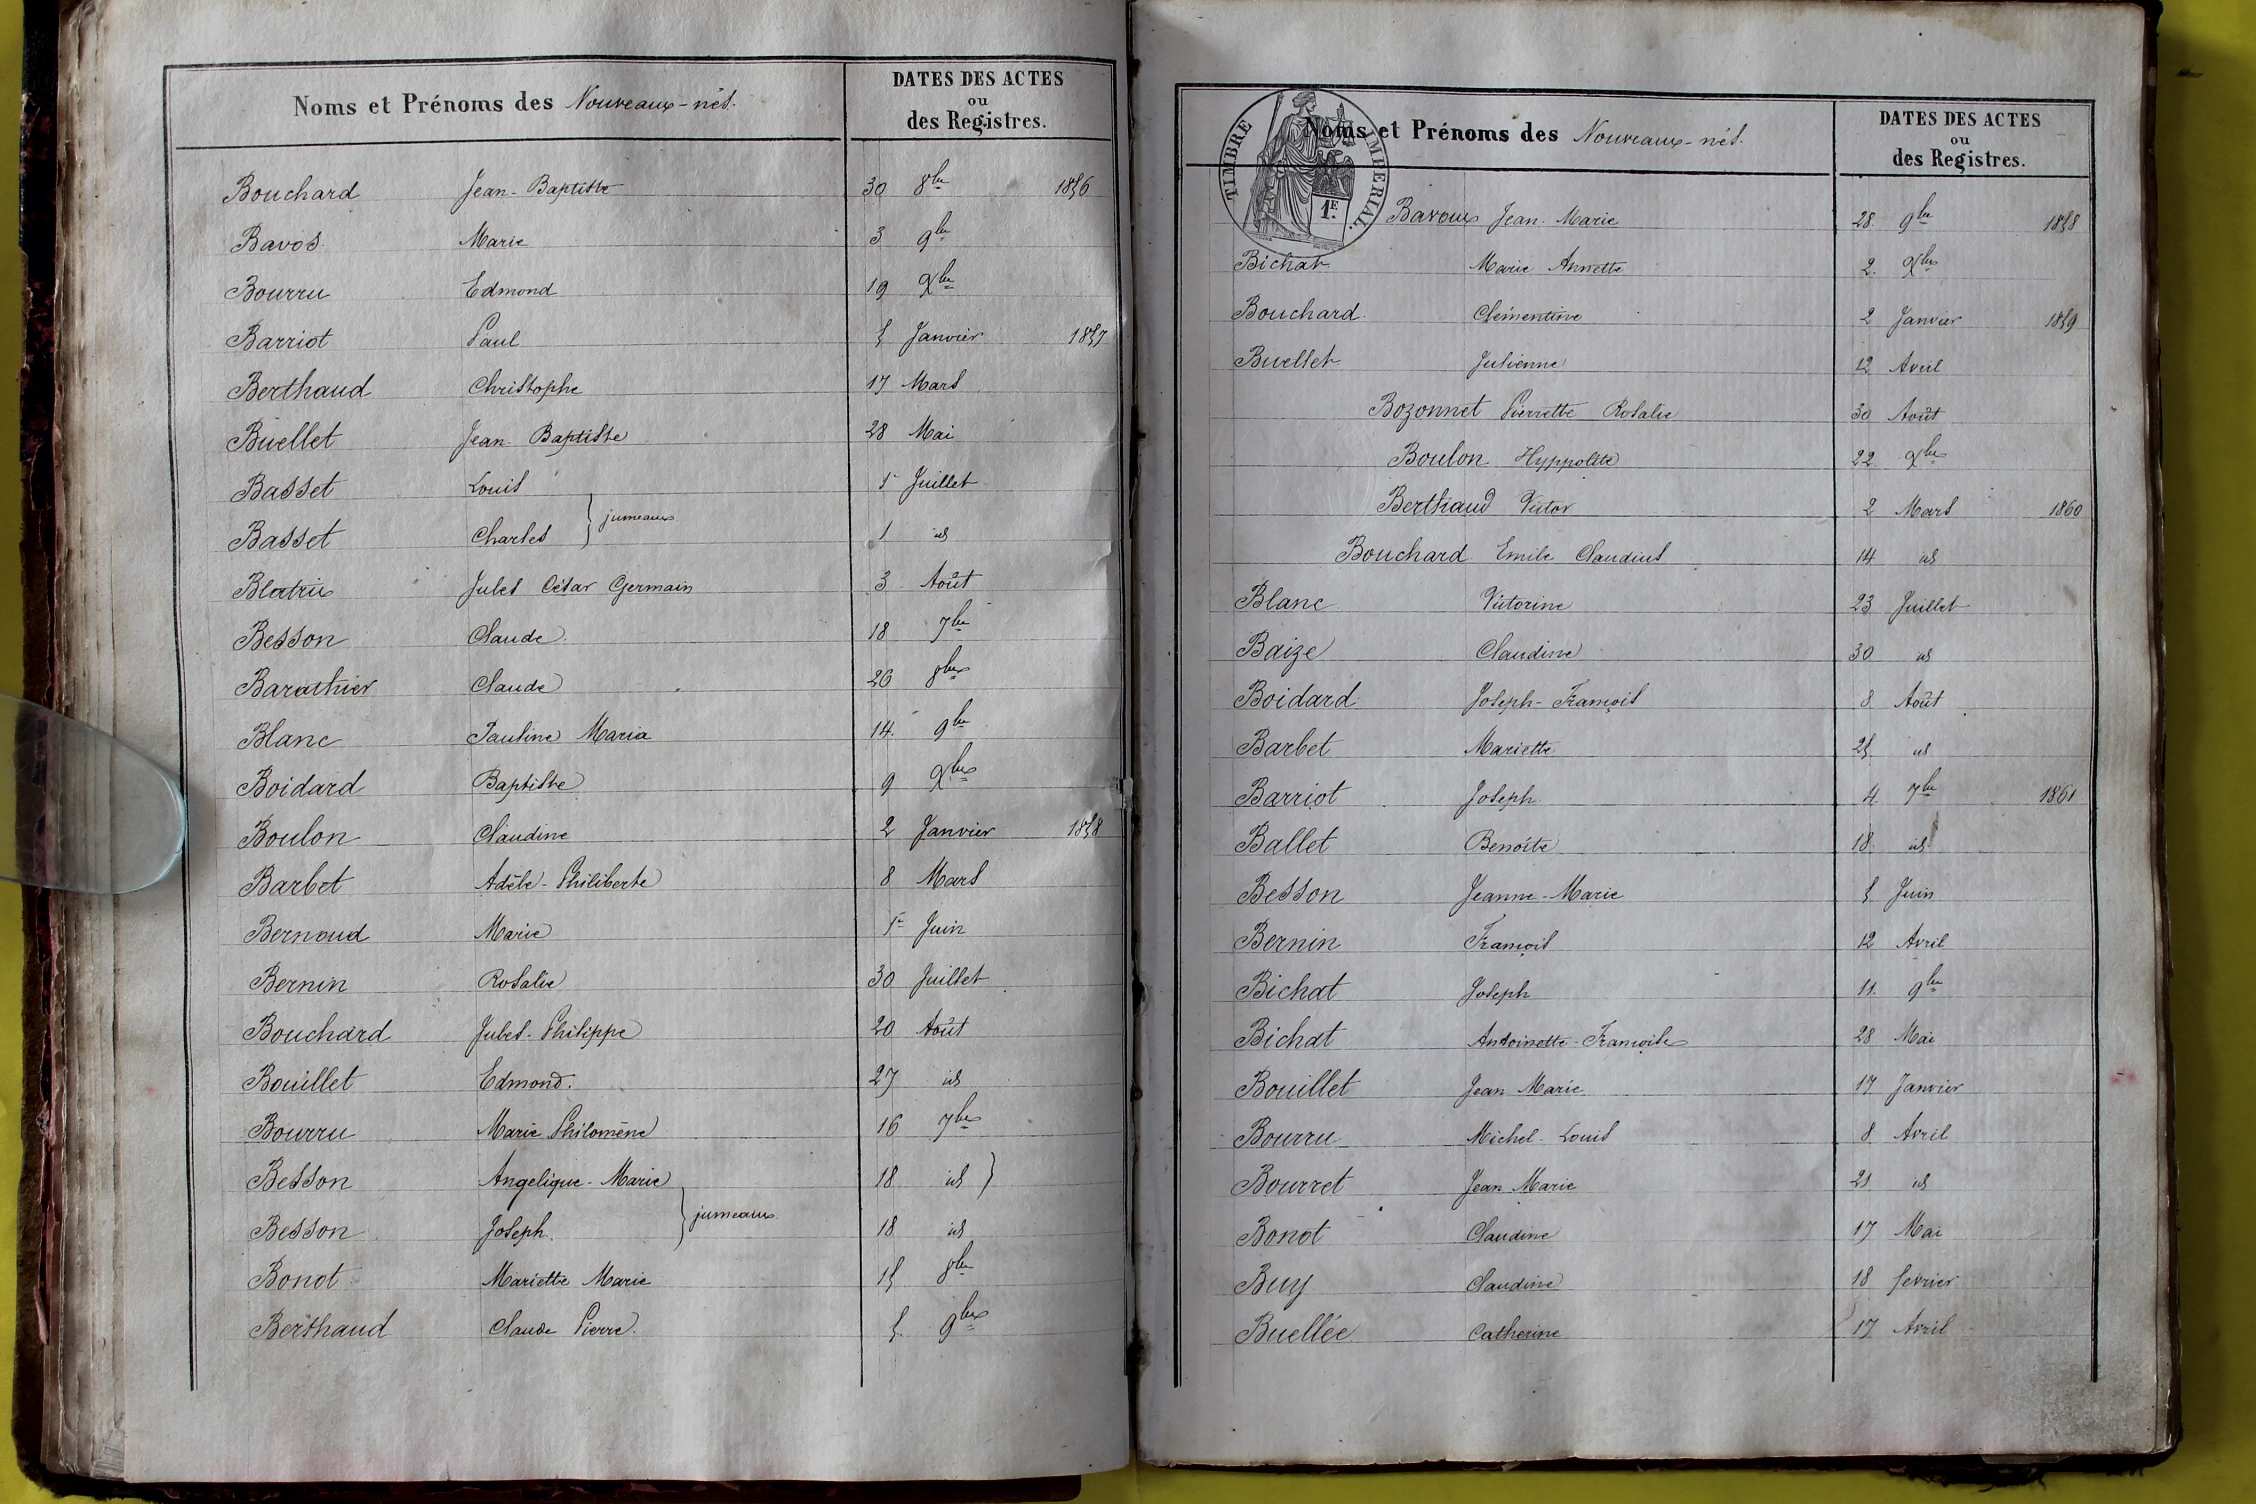 Noms et Prénoms des Nouveaux-nés.
DATES DES ACTES
ou
des Registres.
Bouchard Jean-Baptiste 30 8bre 1856
Bavos Marie 3 9bre
Bourru Edmond 19 Xbre
Barriot Paul 5 Janvier 1857
Berthaud Christophe 17 Mars
Buellet Jean-Baptiste 28 Mai
Basset Louis 1r Juillet
jumeaux
Basset Charles 1 id
Jules César Germain 3 Août
Besson Claude 18 7bre
Barathier Claude 26 8bre
Blanc Pauline Maria 14 9bre
Boidard Baptiste 9 Xbre
Boulon Claudine 2 Janvier 1858
Barbet Adèle-Philiberte 8 Mars
Bernoud Marie 1r Juin
Bernin Rosalie 30 Juillet
Bouchard Jules-Philippe 20 Août
Bouillet Edmond. 27 id
Bourru Marie Philomène 16 7bre
Besson Angelique-Marie 18 id
jumeaux
Besson Joseph 18 id
Bonot Mariette Marie 15 8bre
Berthaud Claude Pierre. 5 9bre
TIMBRE IMPERIAL.
1E.
Noms et Prénoms des Nouveaux-nés.
DATES DES ACTES
ou
des Registres.
Bavoux Jean-Marie 28 9bre 1858
Bichat Marie Annette 2 Xbre
Bouchard Clémentine 2 Janvier 1859
Buellet Julienne 12 Avril
Bozonnet Pierrette Rosalie 30 Août
Boulon Hyppolite 22 Xbre
Berthaud Victor 2 Mars 1860
Bouchard Emile Claudius 14 id
Blanc Victorine 23 Juillet
Baize Claudine 30 id
Boidard Joseph-François 8 Août
Barbet Mariette 25 id
Barriot Joseph 4 7bre 1861
Ballet Benoîte 18 id
Besson Jeanne-Marie 5 Juin
Bernin François 12 Avril
Bichat Joseph 11 9bre
Bichat Antoinette-Françoise 28 Mai
Bouillet Jean Marie 17 Janvier
Bourru Michel-Louis 8 Avril
Bourret Jean Marie 21 id
Bonot Claudine 17 Mai
Buy Claudine 18 février
Buellée Catherine 17 Avril